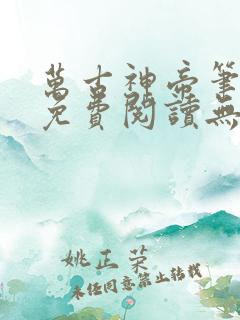 萬古神帝筆
免費閱讀無
姚正榮
未經同意禁止轉載